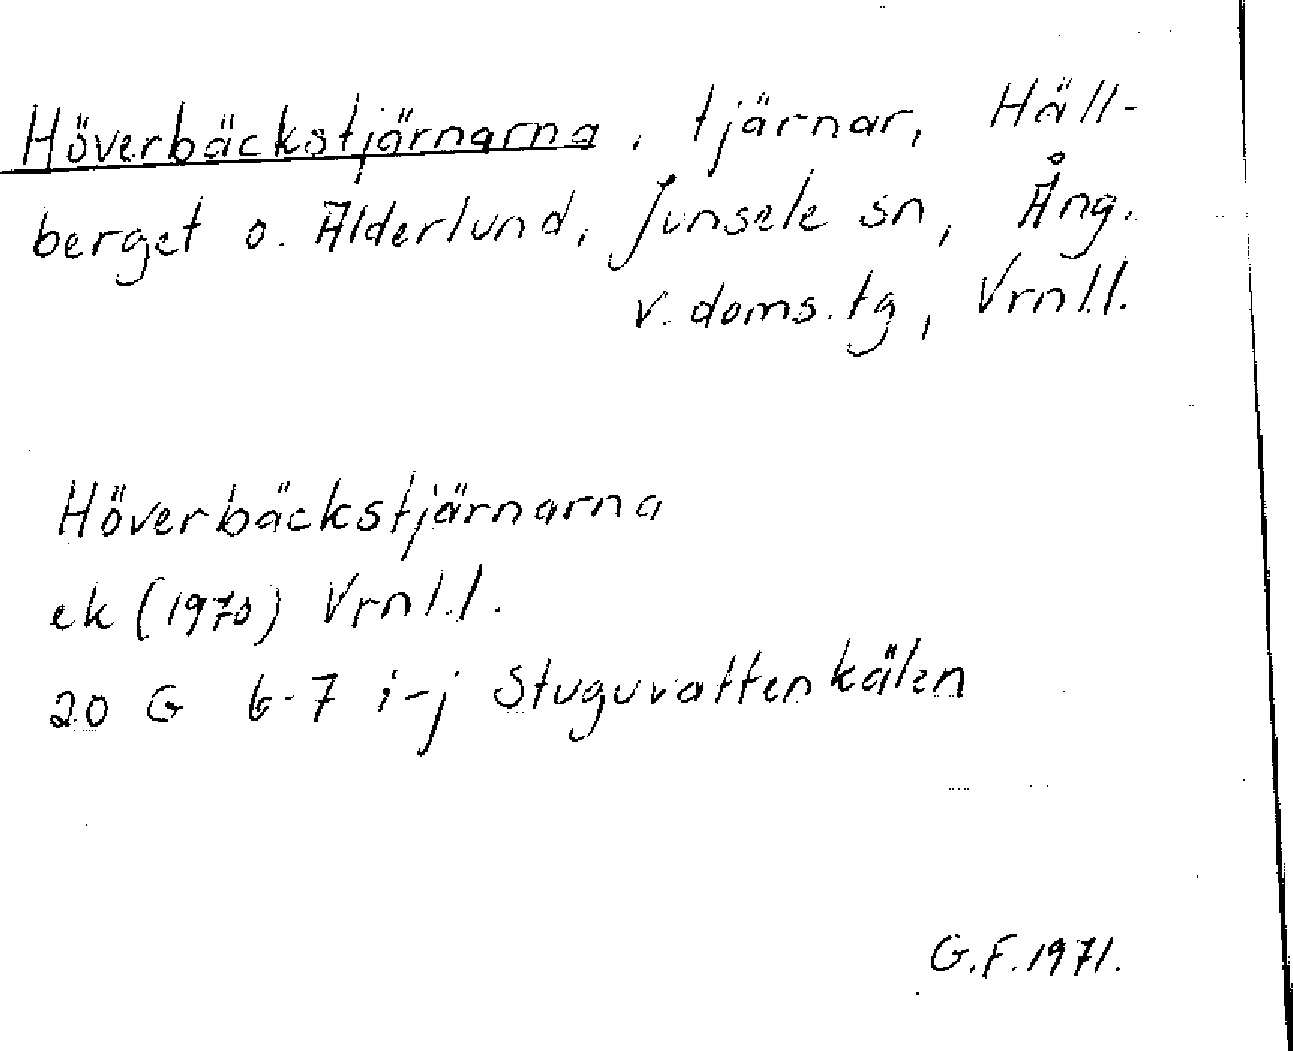 Höverbäckstjärnarna, tjärnar, Häll-
berget o. Älderlund, Junsele sn, Ång.
v. doms.tg, Vrnl.l.
Höverbäckstjärnarna
ek (1970) Vrnl.l.
20 G 6-7 i-j Stuguvattenkälen
G.F. 1971.